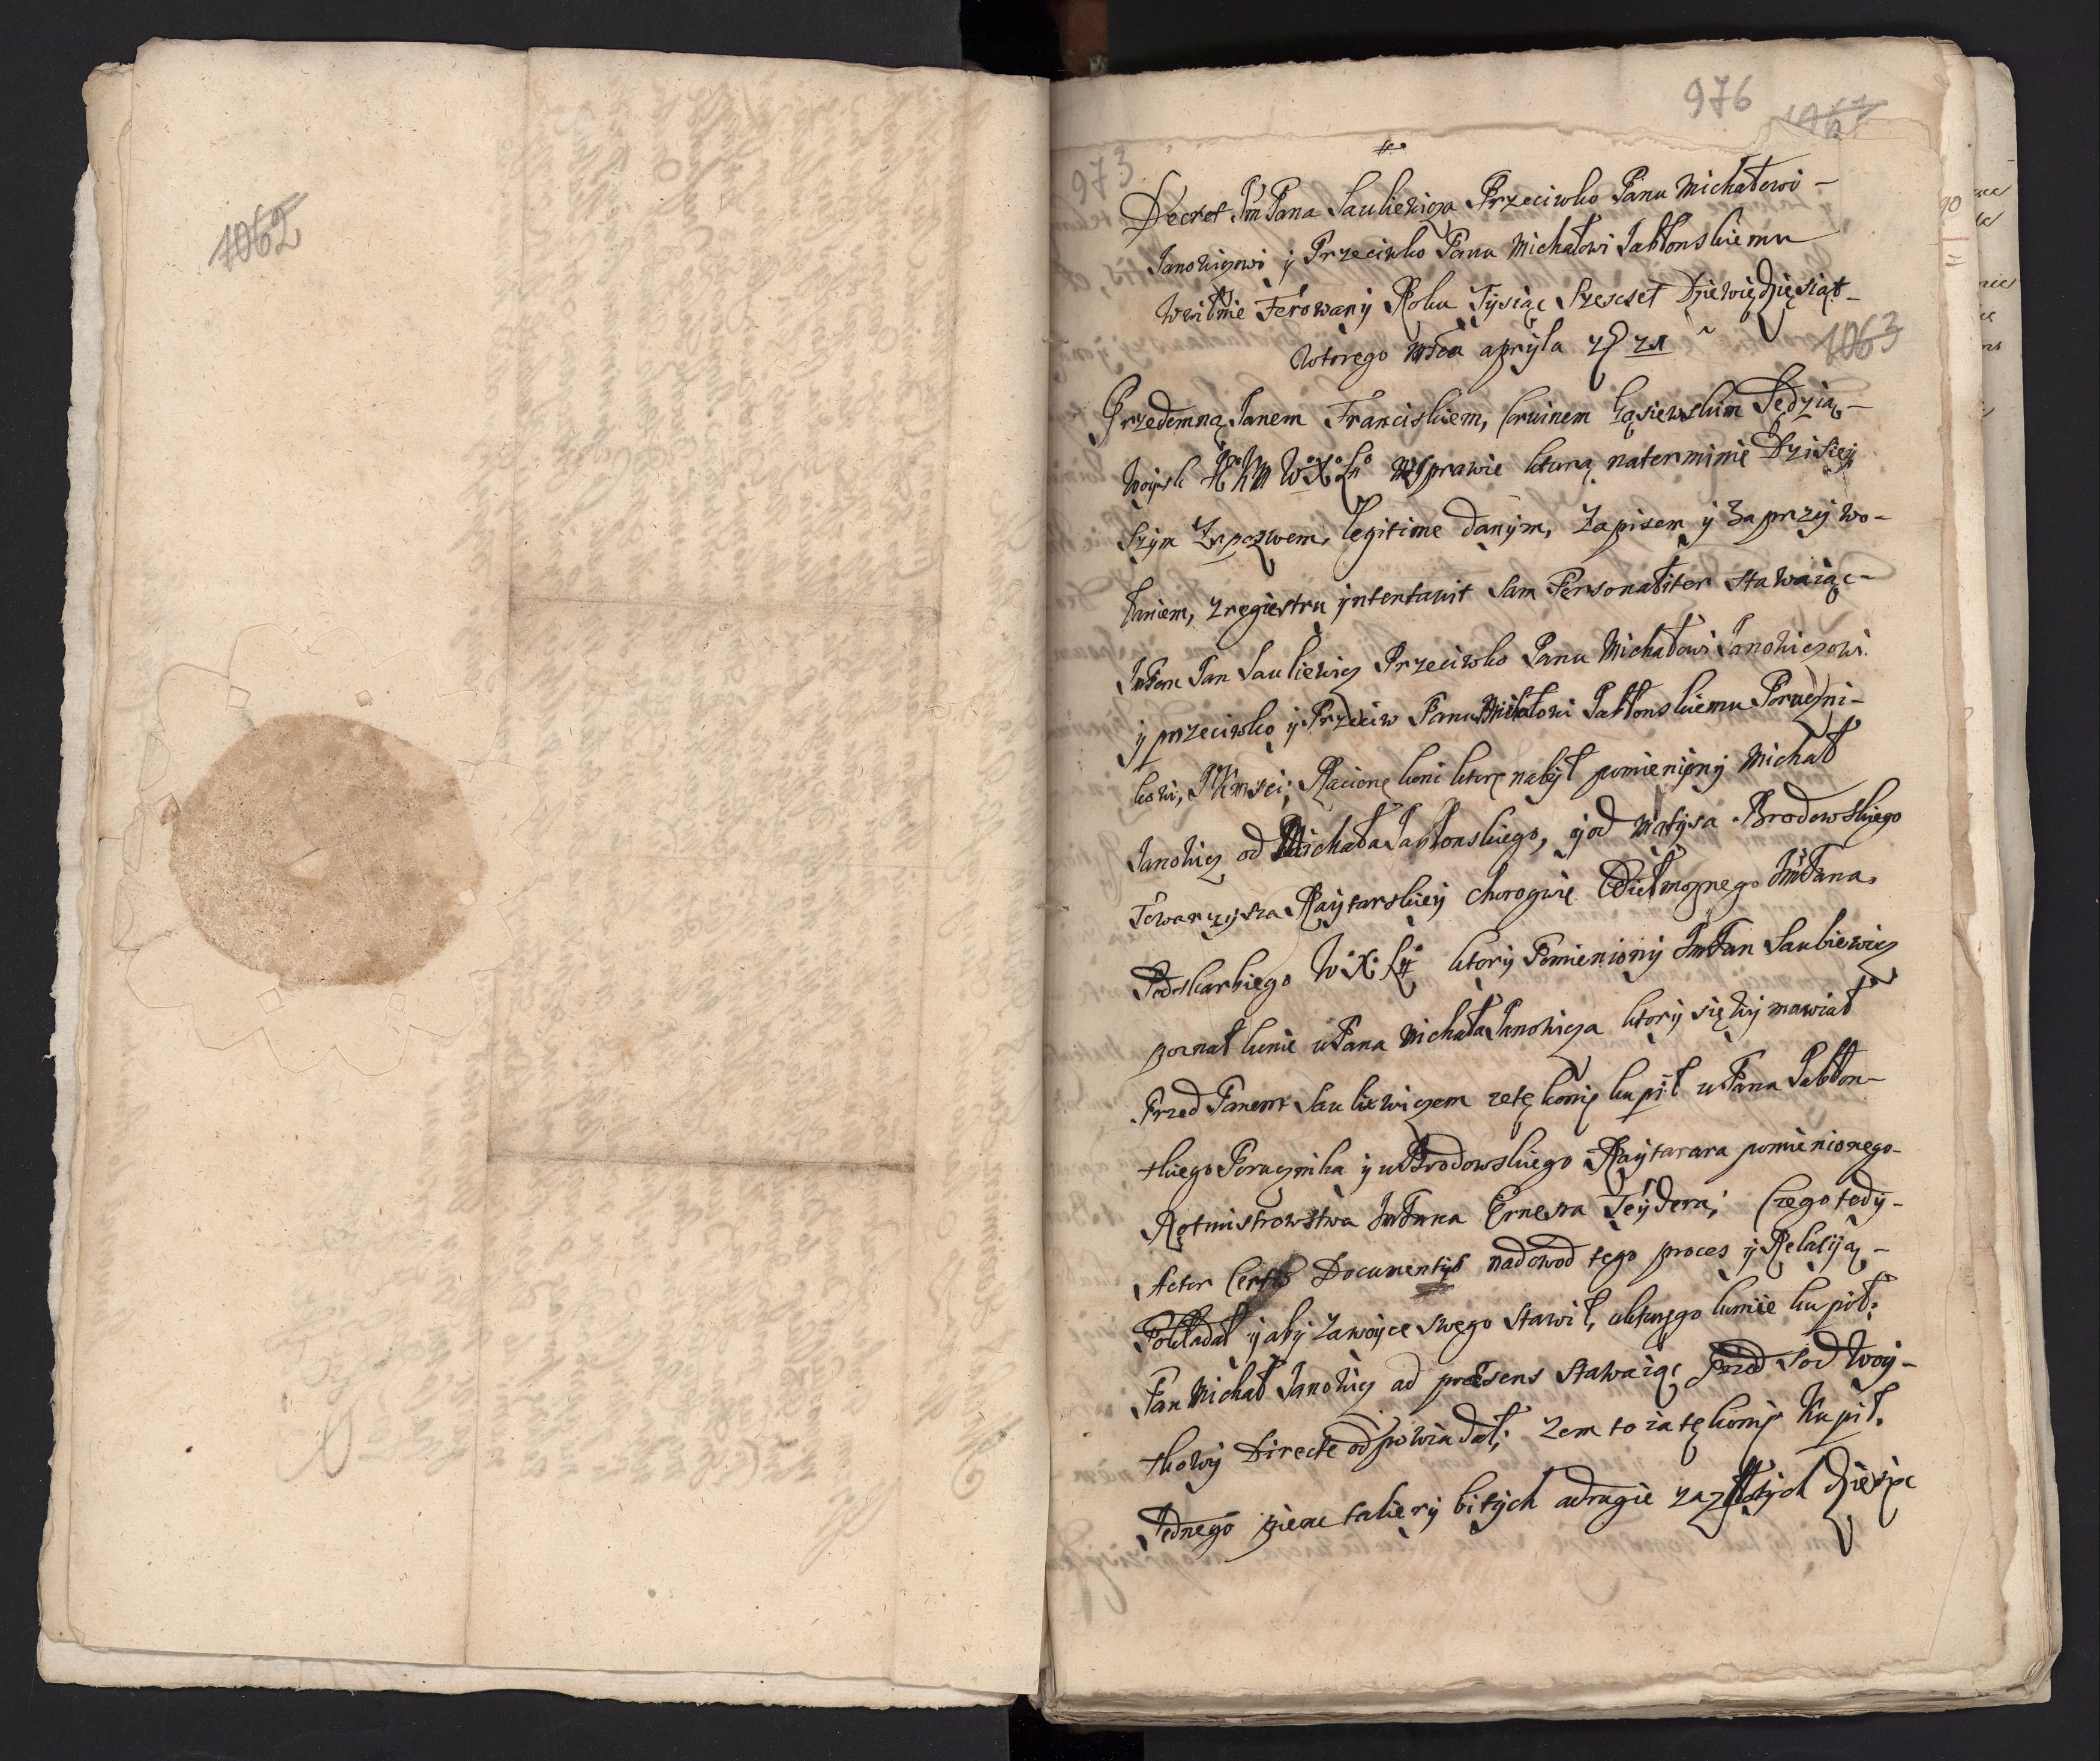 1062
976
973
Decret Jm Pana Sauliewicza Przeciwko Panu Michałowi
Janowiczowi y Przeciwko Panu Michałowi Jabłonskiemu
Wwilnie Ferowany Roku Tysiąc Szescset Dziewiędziesiąt
wtorego Msca apryla
1063
Przedemną Janem Franciskiem, Corvinem Gąsiewskim Sędzią
Woysk JKM WXL wsprawie ktura naterminie Dzisiey
szym Zapozwem, legitime danym, Zapisem y Zaprzywo-
łaniem, zregiestru yntentowit Sam Personaliter stawaiąc
JmPan Jan Sauliewicz Przeciwko Panu Michałowi Janowiczowi
y przeciwko y Przeciw Panu Michałowi Jabłonskiemu Poruczni-
kowi, JKmsci; Racione koni ktore nabył pomieniony Michał
Janowicz od Michała Jabłonskiego, y od Matysa Brodowskiego
Towarzysza Raytarskiey chorogwie Wielmoznego JmPana
Podskarbiego W X L ktory Pomieniony JmPan Saulewicz
poznał konie u Pana Michała Janowicza ktory się wymawiał
Przed Panem Sauliewiczem zete konie kupił u Pana Jabłon-
skiego Porucznika y u Brodowskiego Raytarara pomienionego
Rotmistrowstwa JmPana Ernesta Czego tedy
Actor Certis Documentys nadowod tego proces y Relatiją
Pokładał y aby zawoyce swego stawił, ukturego konie kupił:
Pan Michał Janowicz ad præsens stawaiąc przed Sod Woy-
skowy Directe odpowiadał; Zem to ia te konie Kupił.
Jednego piene taliery bitych adrugie zazłotych dziesięc